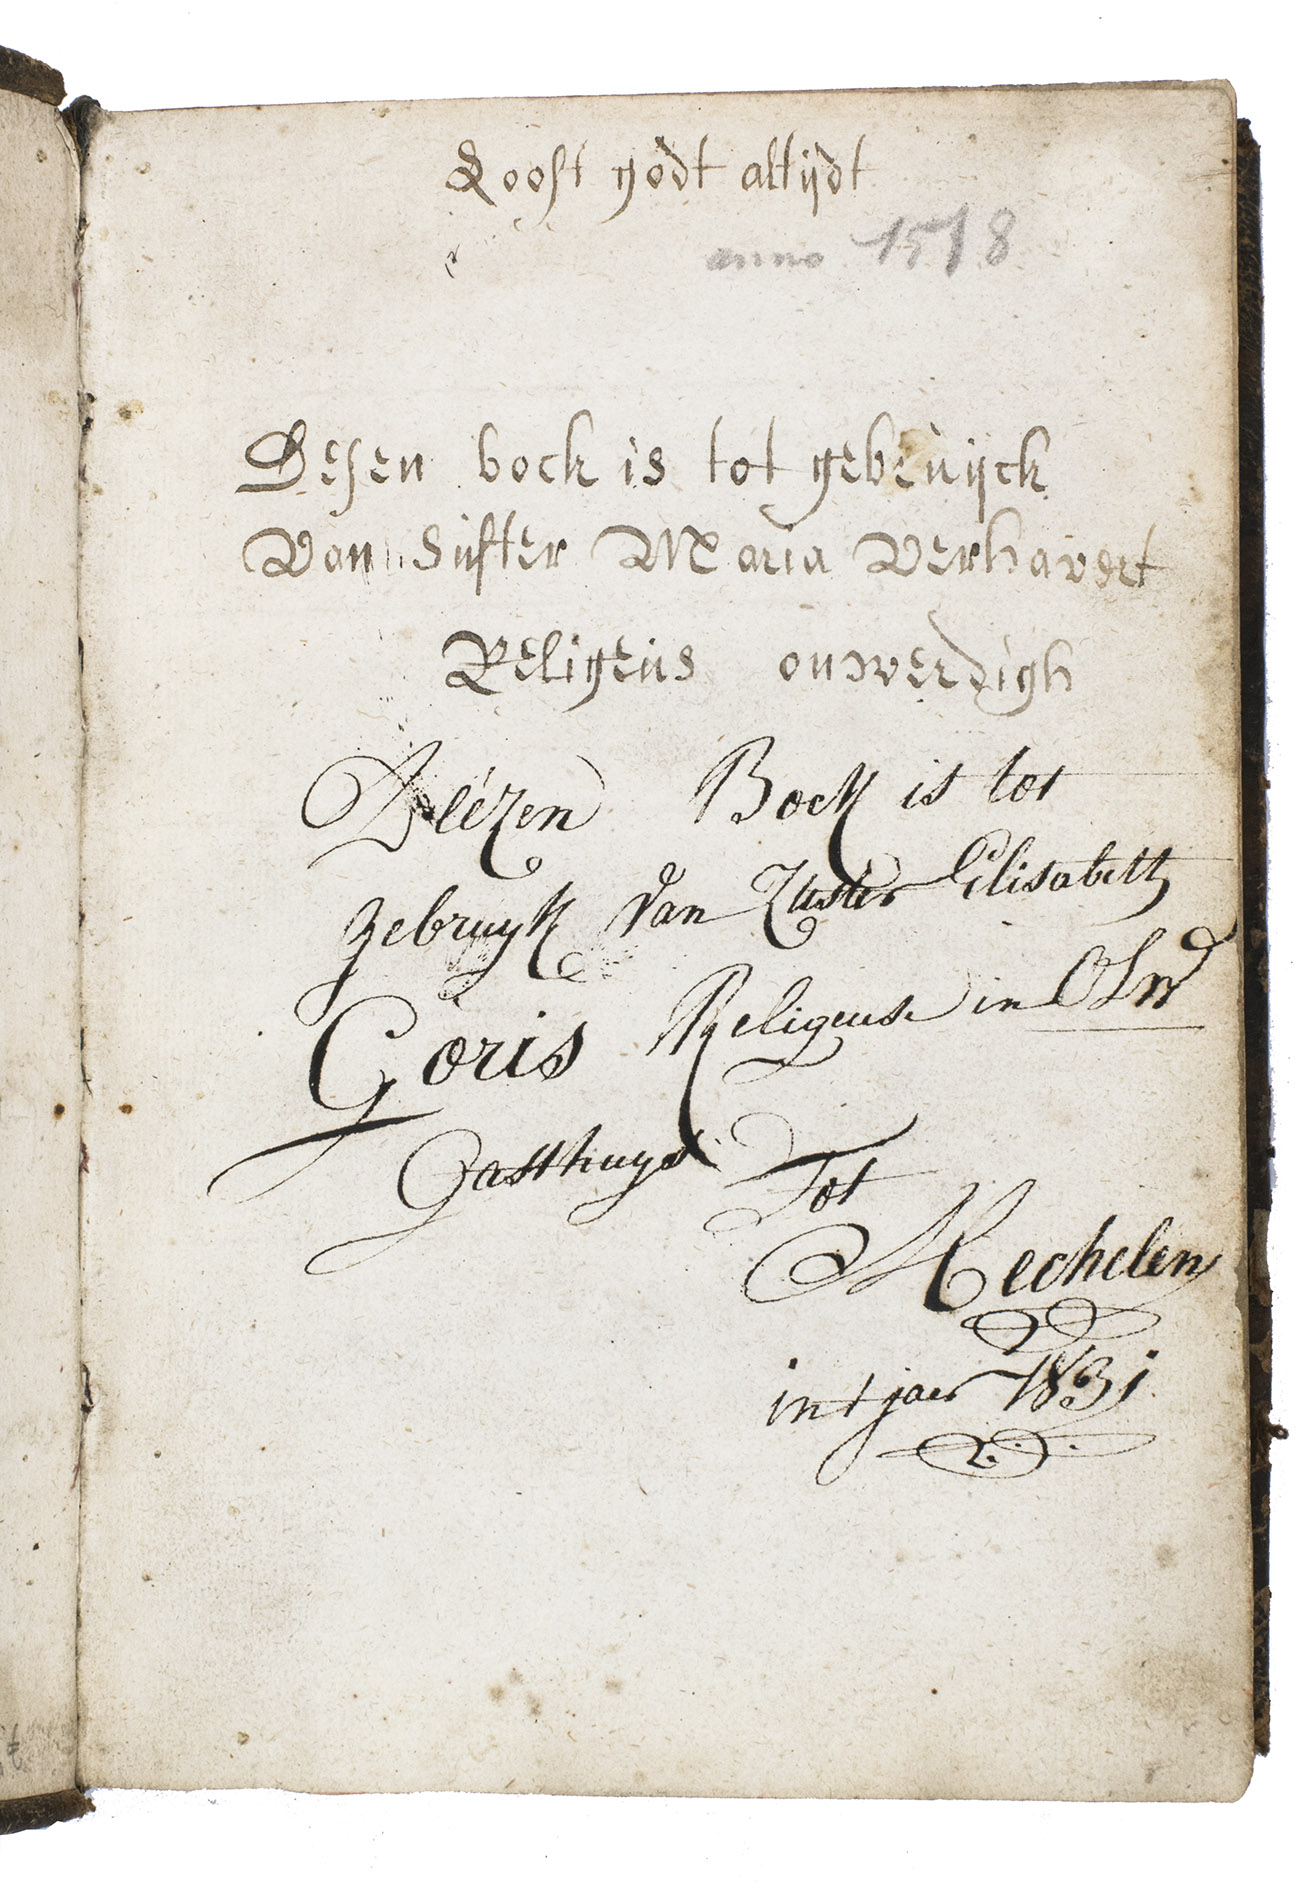 Looft godt altijdt
anno 1518
Desen boek is tot gebruijck
Van Suster Maria Verhavert
Religeus onwerdigh
Dézen Boek is tot
gebruyk van Zuster Elisabeth
Goris Religeuse in OLVr
Gasthuys Tot
Mechelen
int jaer 1831